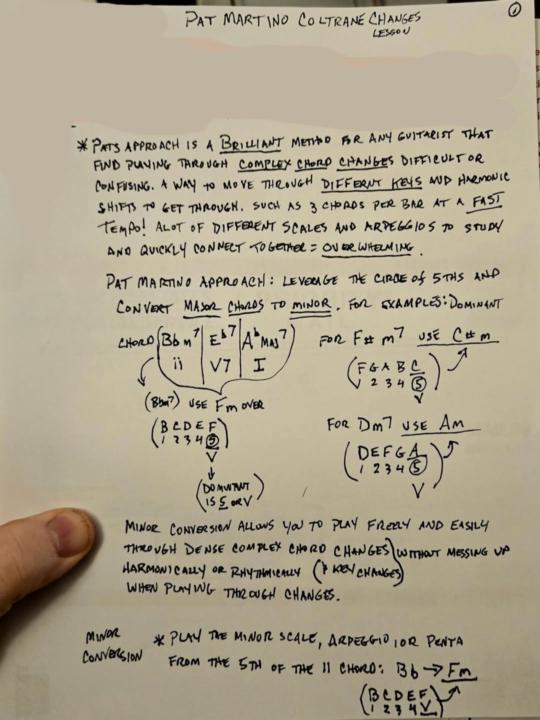 ①
PAT MARTINO COLTRANE CHANGES
LESSON
* PATS APPROACH IS A BRILLIANT METHOD FOR ANY GUITARIST THAT
FIND PLAYING THROUGH COMPLEX CHORD CHANGES DIFFICULT OR
CONFUSING. A WAY TO MOVE THROUGH DIFFERNT KEYS AND HARMONIC
SHIFTS TO GET THROUGH. SUCH AS 3 CHORDS PER BAR AT A FAST
TEMPO! ALOT OF DIFFERENT SCALES AND ARPEGGIOS TO STUDY
AND QUICKLY CONNECT TOGETHER = OVERWHELMING.
PAT MARTINO APPROACH: LEVERAGE THE CIRCLE OF 5THS AND
CONVERT MAJOR CHORDS TO MINOR. FOR EXAMPLES: DOMINANT
CHORD (Bbm7 | Eb7 | Ab MAJ7)
ii | V7 | I
(Bbm7) USE Fm OVER
(B C D E F
1 2 3 4 5)
V
(DOMINANT
IS 5 OR V)
FOR F# m7 USE C# m
(F G A B C
1 2 3 4 5)
V
FOR Dm7 USE Am
(D E F G A
1 2 3 4 5)
V
MINOR CONVERSION ALLOWS YOU TO PLAY FREELY AND EASILY
THROUGH DENSE COMPLEX CHORD CHANGES) WITHOUT MESSING UP
HARMONICALLY OR RHYTHMICALLY (& KEY CHANGES)
WHEN PLAYING THROUGH CHANGES.
MINOR
CONVERSION
* PLAY THE MINOR SCALE, ARPEGGIO, OR PENTA
FROM THE 5TH OF THE II CHORD: Bb → Fm
(B C D E F
1 2 3 4 V)